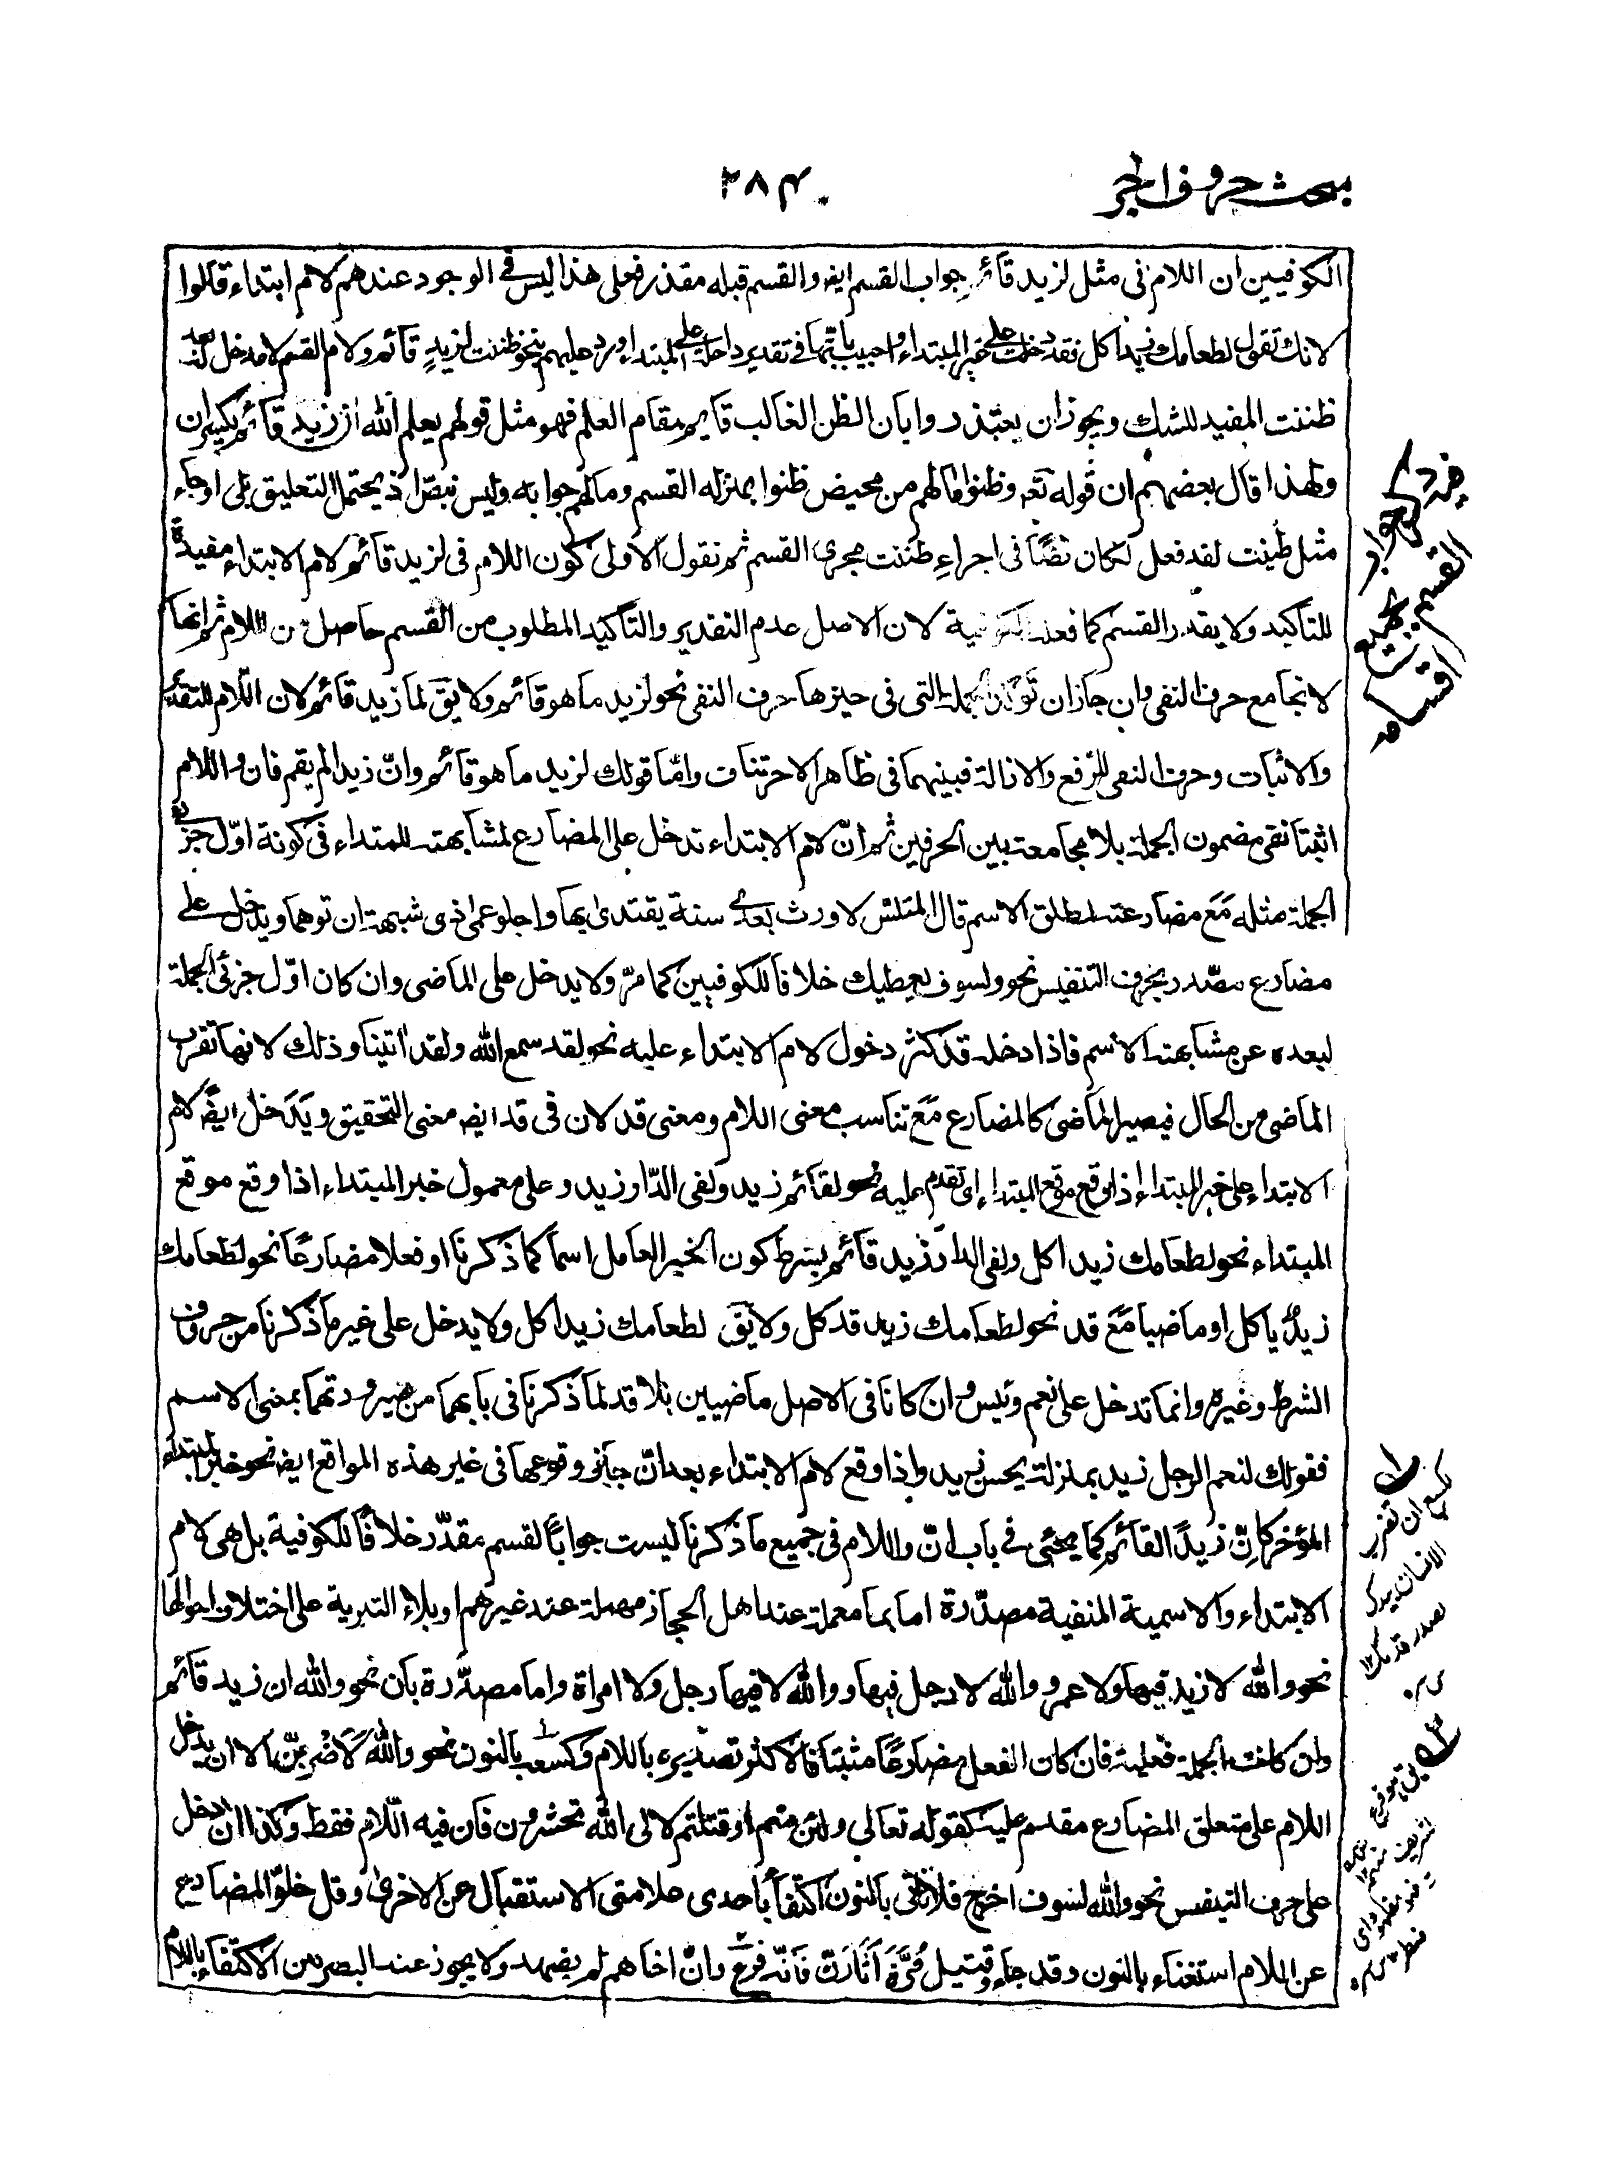 بحث حروف الجر
٣٨۴
الكوفيين ان اللام فى مثل لزيد قائم جواب القسم ايضا والقسم قبله مقدر فعلى هذا ليس في الوجود عندهم لام ابتداء قالوا
لانك تقول لطعامك زيدا كل فقد دخلت على خبر المبتداء واجيب بانها في تقدير داخلة على المبتداء ورد عليهم بنحو ظننت لزيد قائم ولام القسم لا مدخل له بعد
ظننت المفيد للشك ويجوز ان يعتذروا بان الظن الغالب قايم مقام العلم فهو مثل قولهم يعلم الله ان زيد قائم بكسر ان
ولهذا قال بعضهم ان قوله تعه وظنوا مالهم من محيص ظنوا بمنزله القسم ومالهم جوابه وليس نبصّ اذ يحتمل التعليق بلى لو جاء
مثل ظننت لقد فعل لكان نصًّا فى اجراء ظننت مجرى القسم ثم نقول الاولى كون اللام فى لزيد قائم لام الابتداء مفيدة
للتاكيد ولا يقدر القسم كما فعله الكوفية لان الاصل عدم التقدير والتاكيد المطلوب من القسم حاصل من اللام ثم انها
لا تجامع حرف النفى وان جاز ان تؤكد الجملة التى فى حيزها حرف النفى نحو لزيد ما هو قائم ولا يقَ لما زيد قائم لان اللام للتقدير
والاثبات وحرف النفى للرفع والازالة فبينهما فى ظاهر الاحر تناف وامّا قولك لزيد ما هو قائم وانّ زيدا لم يقم فان واللام
اثبتا نفى مضمون الجملة بلا مجامعة بين الحرفين ثم انّ لام الابتداء تدخل على المضارع لمشابهته للمتداء فى كونه اوّل جزئى
الجملة مثله مَعَ مضارعته لمطلق الاسم قال المتلمس لاورث بعدى سنة يقتدى بها واجلو عمى ذى شبهة ان توهما ويدخل على
مضارع مصّدر بحرف التنفيس نحو ولسوف يعطيك خلافا للكوفيين كما مرّ ولا يدخل على الماضى وان كان اوّل جزئى الجملة
لبعده عن مشابهة الاسم فاذا دخله قد كثر دخول لام الابتداء عليه نحو لقد سمع الله ولقد اتينا وذلك لانها تقرب
الماضى من الحال فيصير الماضى كالمضارع مَعَ تناسب معنى اللام ومعنى قد لان فى قد ايضه معنى التحقيق ويَدَخل ايضَه لام
الابتداء على خبر المبتداء اذا وقع موقع المبتداء اى تقدم عليه نحو لقائم زيد ولفى الدّار زيد وعلى معمول خبر المبتداء اذا وقع موقع
المبتداء نحو لطعامك زيدا كل ولفى الدار زيد قائم بشرط كون الخبر العامل اسما كما ذكرنا او فعلا مضارعًا نحو لطعامك
زيدٌ ياكل او ماضيا مَعَ قد نحو لطعامك زيد قد كل ولا يقَ لطعامك زيد اكل ولا يدخل على غير ما ذكرنا من حروف
الشرط وغيره وانما تدخل على نعم وبئس وان كانا فى الاصل ماضيين بلا قد لما ذكرنا فى بابهما من صيرورتهما بمعنى الاسم
فقولك لنعم الرجل زيد بمنزلة يحسن زيد واذا وقع لام الابتداء بعد انّ جاز وقوعها فى غير هذه المواقع ايضه نحو خبر المبتداء
المؤخر كانّ زيدًا لقائم كما يجئى في باب انّ واللام فى جميع ما ذكرنا ليست جوابًا لقسم مقدّر خلافا للكوفية بل هى لام
الابتداء والاسمية المنفية مصدّرة اما بما معملة عند اهل الحجاز مهملة عند غيرهم او بلاء التبرية على اختلاف احوالها
نحو والله لا زيد فيها ولا عمرو ووالله لا رجل فيها ووالله لا فيها رجل ولا امراة واما مصدّرة بان نحو والله ان زيد قائم
وان كانت الجملة فعلية فان كان الفعل مضارعًا مثبتا فالاكثر تصديره باللام وكسعه بالنون نحو والله لَاَضْرِبَنّ الا ان يدخل
اللام على متعلق المضارع مقدم عليه كقوله تعالى ولئن متم او قتلتم لالى الله تحشرون فان فيه اللام فقط وكذا ان دخل
على حرف التنفيس نحو والله لسوف اخرج فلا ياتى بالنون اكتفاءً باحدى علامتى الاستقبال عن الاخرى وقل خلوّ المضارع
عن اللام استغناء بالنون وقد جاء وقتيل مُرَّةَ اَثْاَرَنّ فَاَنّه فرعٌ وانّ اخاهم لم يضهد ولا يجوز عند البصريين الاكتفاء باللام
جواب
القسم بجميع
اقسامه